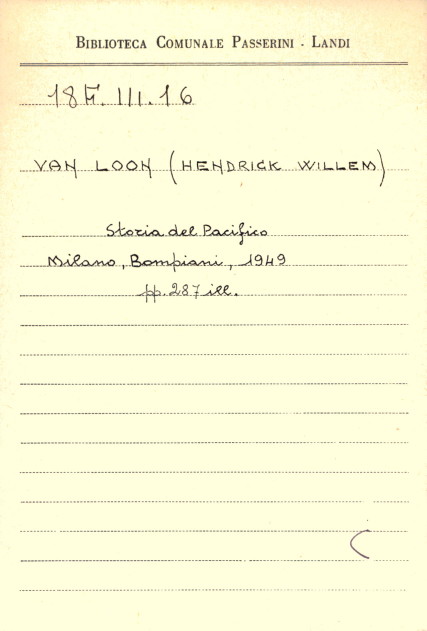 BIBLIOTECA COMUNALE PASSERINI - LANDI
VAN LOON (HENDRICK WILLEM)
Storia del Pacifico
Milano, Bompiani, 1949
pp. 287 ill.